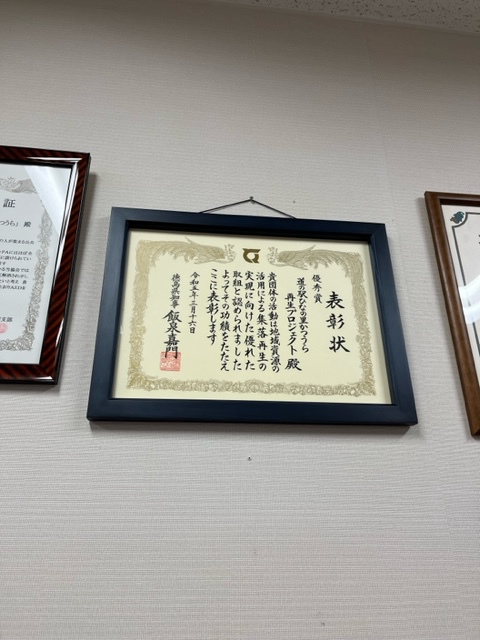 表彰状
優秀賞
道の駅ひなの里かつうら
再生プロジェクト 殿
貴団体の活動は地域資源の
活用による集落再生の
実現に向けた優れた
取組と認められました
よってその功績をたたえ
ここに表彰します
令和五年三月十六日
徳島県知事 飯泉嘉門
証
殿